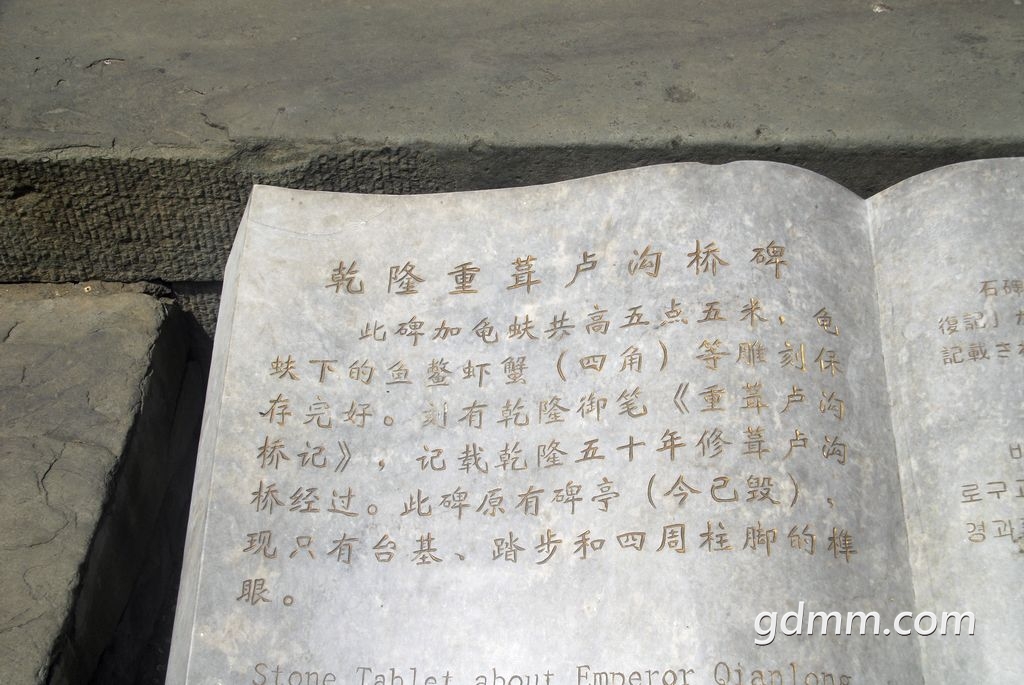 乾隆重葺卢沟桥碑
此碑加龟蚨共高五点五米，龟
蚨下的鱼鳌虾蟹（四角）等雕刻保
存完好。刻有乾隆御笔《重葺卢沟
桥记》，记载乾隆五十年修葺卢沟
桥经过。此碑原有碑亭（今已毁），
现只有台基、踏步和四周柱脚的榫
眼。
Stone Tablet about Emperor Qianlong
石碑
復記」
記載さ
로구교
경과
gdmm.com